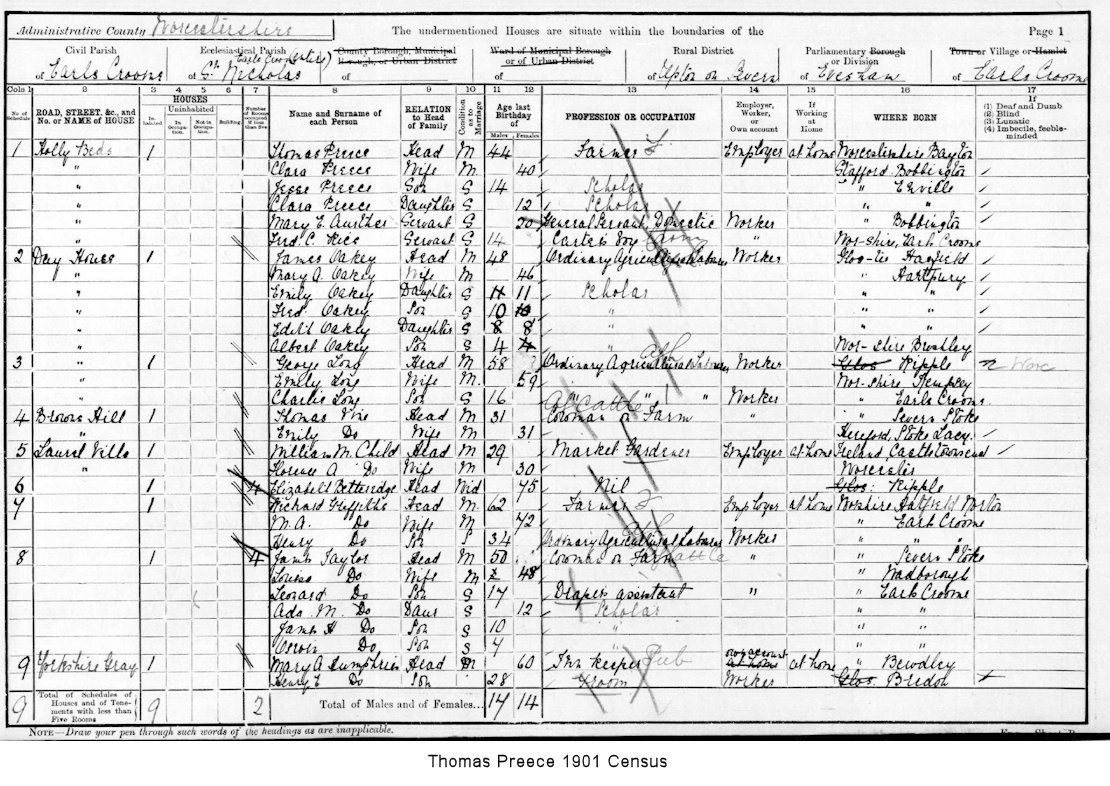 Administrative County Worcestershire The undermentioned Houses are situate within the boundaries of the Page 1
Civil Parish Ecclesiastical Parish County Borough, Municipal Borough, or Urban District Ward of Municipal Borough or of Urban District Rural District Parliamentary Borough or Division Town or Village or Hamlet
of Earls Croome of St. Nicholas of of of Upton on Severn of Evesham of Earls Croome
Cols 1 2 3 4 5 6 7 8 9 10 11 12 13 14 15 16 17
No. of Schedule ROAD, STREET, &c., and No. or NAME of HOUSE HOUSES Inhabited Uninhabited In Occupation Not in Occupation Building Number of Rooms occupied if less than five Name and Surname of each Person RELATION to Head of Family Condition as to Marriage Age last Birthday of Males Females PROFESSION OR OCCUPATION Employer, Worker, or Own account If Working at Home WHERE BORN If (1) Deaf and Dumb (2) Blind (3) Lunatic (4) Imbecile, feeble-minded
1 Holly Beds 1 Thomas Preece Head M 44 Farmer Employer at home Worcestershire Bayton
" Clara Preece Wife M 40 Stafford Bobbington
" Jesse Preece Son S 14 Scholar " Enville
" Clara Preece Daughter S 12 Scholar " "
" Mary E. Servant S 20 General Servant Domestic Worker " Bobbington
" Fred. C. Rice Servant S 14 Carter's boy " Wor-shire, Earls Croome
2 Day House 1 James Oakey Head M 48 Ordinary Agricultural Labourer Worker Hasfield
" Mary A Oakey Wife M 46 " Hartpury
" Emily Oakey Daughter S 11 11 Scholar " "
" Fred Oakey Son S 10 10 " " "
" Edith Oakey Daughter S 8 8 " "
" Albert Oakey Son S 4 4 " Wor-shire
3 " 1 George Long Head M 58 Ordinary Agricultural Labourer Worker Glos Ripple Worc
" Emily Long Wife M. 59 Wor-shire Kempsey
" Charlie Long Son S 16 " " " Worker " Earls Croome
4 Browns Hill 1 Thomas Head M 31 Cowman on Farm " " Severn Stoke
" Emily Do Wife M 31 Hereford, Stoke Lacy
5 Laurel Villa 1 William M. Child Head M 29 Market Gardener Employer at home Ireland, Castletownsend
" Florence A Do Wife M 30 Worcester
6 1 4 Elizabeth Betteridge Head Wid 75 Nil Glos: Ripple
7 1 Richard Griffiths Head M. 62 Farmer Employer at home Norton
M. A. Do Wife M 72 " Earls Croome
Henry Do Son S 34 Ordinary Agricultural Labourer Worker " " "
8 1 4 James Taylor Head M 50 Cowman on Farm Cattle " " Severn Stoke
Louisa Do Wife M 48 " Wadborough
Leonard Do Son S 17 Drapers assistant " " Earls Croome
Ada M. Do Daur S 12 Scholar " "
James H Do Son S 10 " " "
Do Son S 7 " "
9 Yorkshire Gray 1 Mary A Humphries Head 60 Inn keeper Pub own account at home " Bewdley
Henry E Do Son 28 Groom Worker Glos Bredon
9 Total of Schedules of Houses and of Tenements with less than Five Rooms 9 2 Total of Males and of Females... 17 14
NOTE—Draw your pen through such words of the headings as are inapplicable.
Thomas Preece 1901 Census